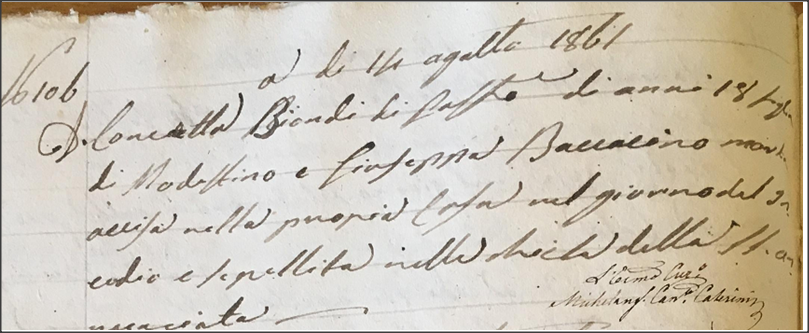 N 6106
a di 14 agosto 1861
D. Concetta Biondi di Passo di anni 18 figlia
di Modestino e Giuseppa Baccacino morta
uccisa nella propria Casa nel giorno del In
cendio e sepellita nella chiesa della SS. an
nunciata
L'Ecmo Cur.
Michelang. Can. Caterini